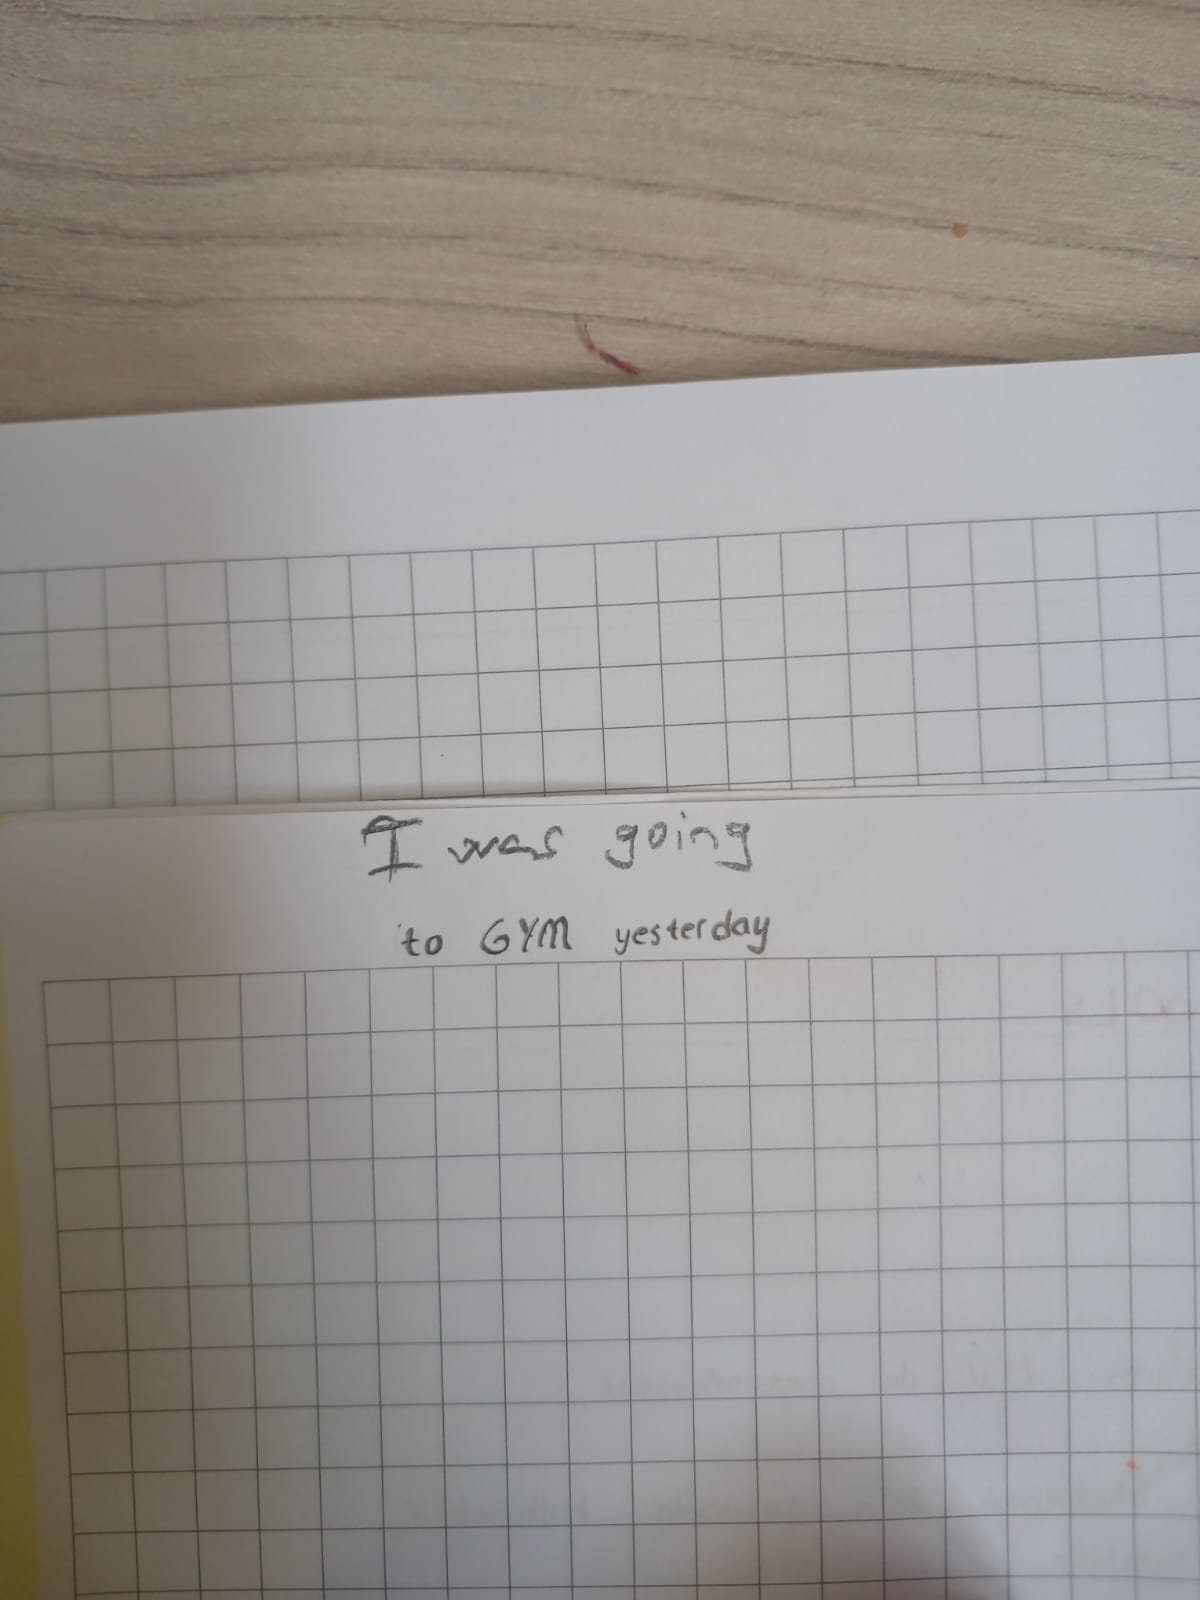 I was going
to GYM yesterday